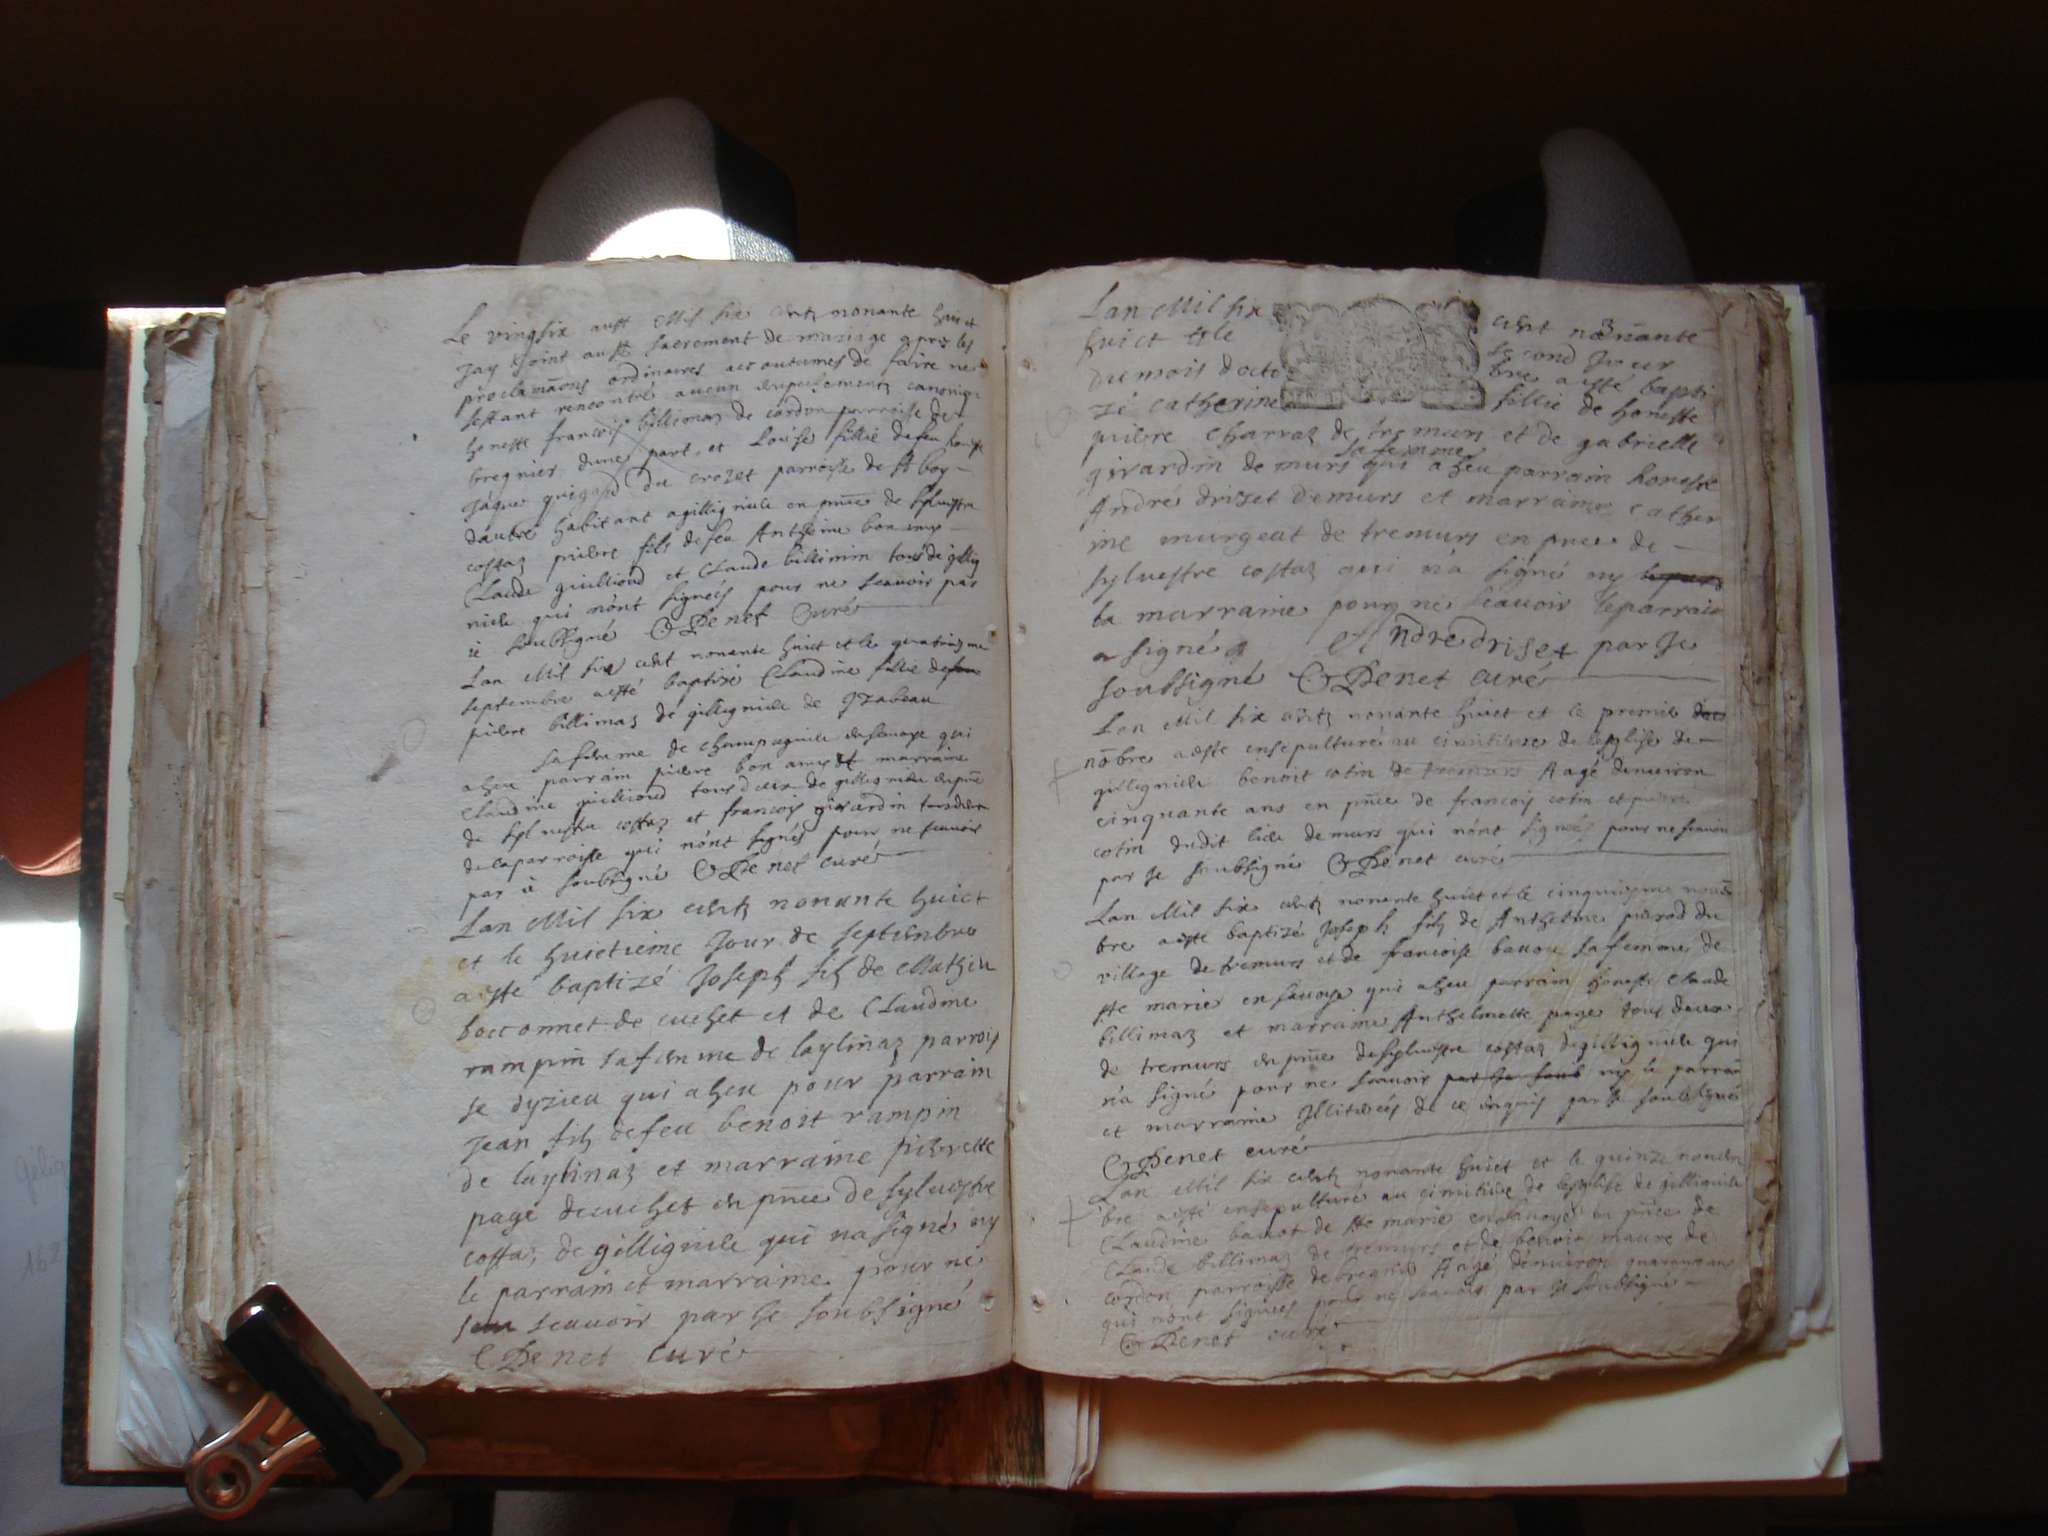 Le vingsix aust Mil six cents nonante huict
jay joint au st sacrement de mariage apres les
proclamaōns ordinaires accoutumes de faire ne
sestant rencontré aucun empechements canoniq
honeste francois billimaz de cordon parroisse de
bregnier dune part et Louise fillie de feu honeste
jaque guigard du crozet parroisse de st boy
dautre habitant a gillignieu en pn̄ce de sylvestre
costaz pierre fils de feu Anthoine bon amy
Claude guilliond et Claude billimin tous de gillig
nieu qui nont signées pour ne scavoir par
ie soubsigné CDenet Curé
Lan Mil six cent nonante huict et le quatriesme
septembre a esté baptizé Claudine fillie de feu
pierre billimaz de gillignieu de Izabeau
sa femme de champagnieu en savoye qui
a heu parrain pierre bon amy et marraine
Claudine guilliond tous deux de gillignieu en pn̄ce
de sylvestre costaz et francois girardin tous deux
de la parroisse qui nont signés pour ne scavoir
par ie soubsigné CDenet curé
Lan Mil six cents nonante huict
et le huictieme jour de septembre
a esté baptizé Joseph fils de Mathieu
boconnet de cuchet et de Claudine
rampin sa femme de laylinaz parrois
se dyzieu qui a heu pour parrain
jean fils de feu benoit rampin
de laylinaz et marraine pierrette
page de cuchet en pn̄ce de sylvestre
costaz de gillignieu qui na signé ny
le parrain et marraine pour ne
scavoir par je soubsigné
CDenet curé
3
Lan Mil six cent nonante
huict et le second jour
du mois docto bre a esté bapti
zé catherine fillie de honeste
pierre charraz de tremurs et de gabrielle
sa femme
girardin de murs qui a heu parrain honeste
André drizet de murs et marraine cather
ine murgeat de tremurs en pnce de
sylvestre costaz qui na signé ny le par
la marraine pour ne scavoir le parrain
a signé Andre driset par je
soubsigné CDenet curé
Lan Mil six cents nonante huict et le premier de
nōbre a este ensepulturé au cimitiere de leglise de
gillignieu benoit cotin de tremurs Aagé denviron
cinquante ans en pn̄ce de francois cotin et pierre
cotin dudit lieu de murs qui nont signés pour ne scavoir
par je soubsigné CDenet curé
Lan Mil six cents nonante huict et le cinquiesme novem
bre a este baptizé Joseph fils de Anthelme pierod du
village de tremurs et de francoise bavou sa femme de
Ste marie en savoye qui a heu parrain honeste Claude
billimaz et marraine Anthelmette page tous deux
de tremurs en pn̄ce de sylvestre costaz de gillignieu qui
na signé pour ne scavoir par je soub ny le parrain
et marraine Illiterés de ce enquis par je soubsigné
CDenet curé
Lan Mil six cents nonante huict et le quinze novem
bre a esté ensepulturé au cimitiere de leglise de gillignieu
Claudine bavot de Ste marie en savoye en pn̄ce de
Claude billimaz de tremurs et de benoit maure de
cordon parroisse de bregnié Aagé denviron quarante ans
qui nont signées pour ne scavoir par je soubsigné
CDenet curé